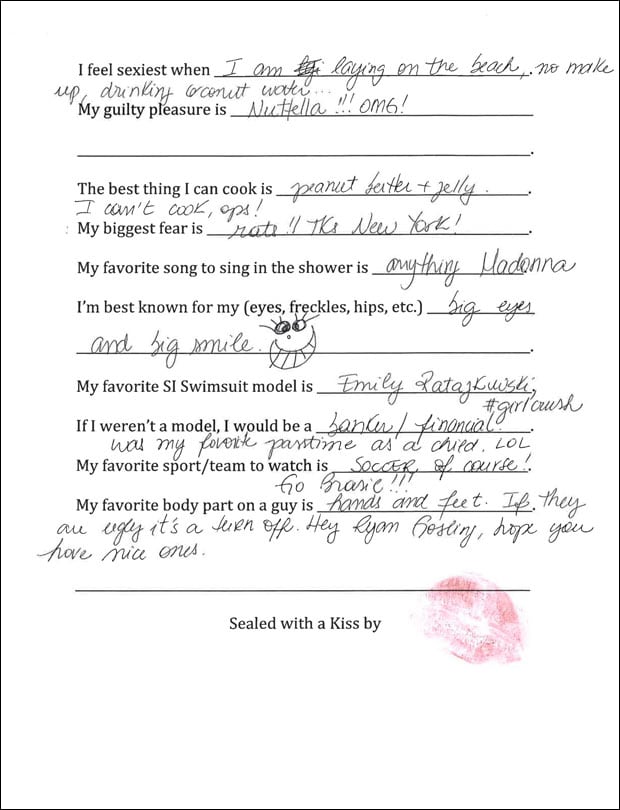 I feel sexiest when I am laying on the beach, no make
up, drinking coconut water...
My guilty pleasure is Nuttella!!! OMG!
.
The best thing I can cook is peanut butter + jelly.
I can't cook, ops!
: My biggest fear is rats!! TKs New York!.
My favorite song to sing in the shower is anything Madonna
I'm best known for my (eyes, freckles, hips, etc.) big eyes
and big smile.
My favorite SI Swimsuit model is Emily Ratajkwuski,
#girlcrush
If I weren't a model, I would be a banker/financial.
was my favorite passtime as a child. LOL
My favorite sport/team to watch is SOCCER, of course!.
Go Brasil!!!
My favorite body part on a guy is hands and feet. If they
are ugly it's a turn off. Hey Ryan Gosling, hope you
have nice ones.
Sealed with a Kiss by